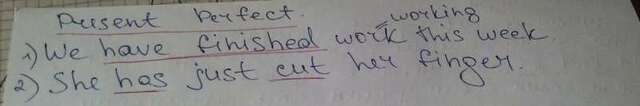 Present Perfect.
working
1) We have finished work this week.
2) She has just cut her finger.